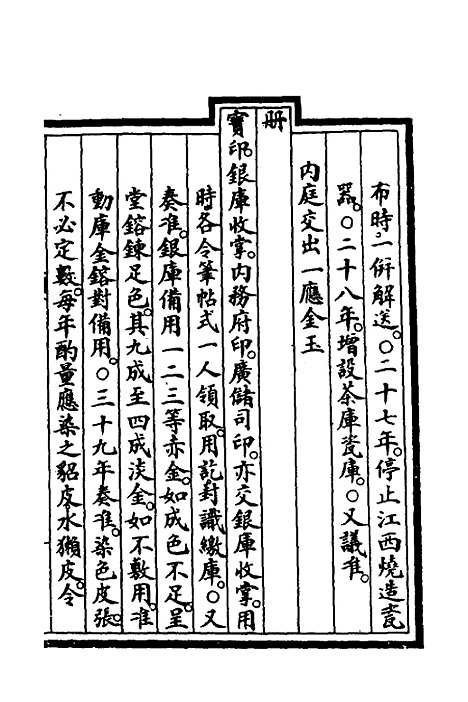 布時。一併解送。○二十七年。停止江西燒造瓷
器。○二十八年。增設茶庫瓷庫。○又議准。
內庭交出一應金玉
冊
寶印。銀庫收掌。內務府印。廣儲司印。亦交銀庫收掌。用
時各令筆帖式一人領取。用訖對識繳庫。○又
奏准。銀庫備用一二三等赤金。如成色不足。呈
堂鎔鍊足色。其九成至四成淡金。如不敷用。准
動庫金鎔對備用。○三十九年奏准。染色皮張。
不必定數。每年酌量應染之貂皮水獺皮。令